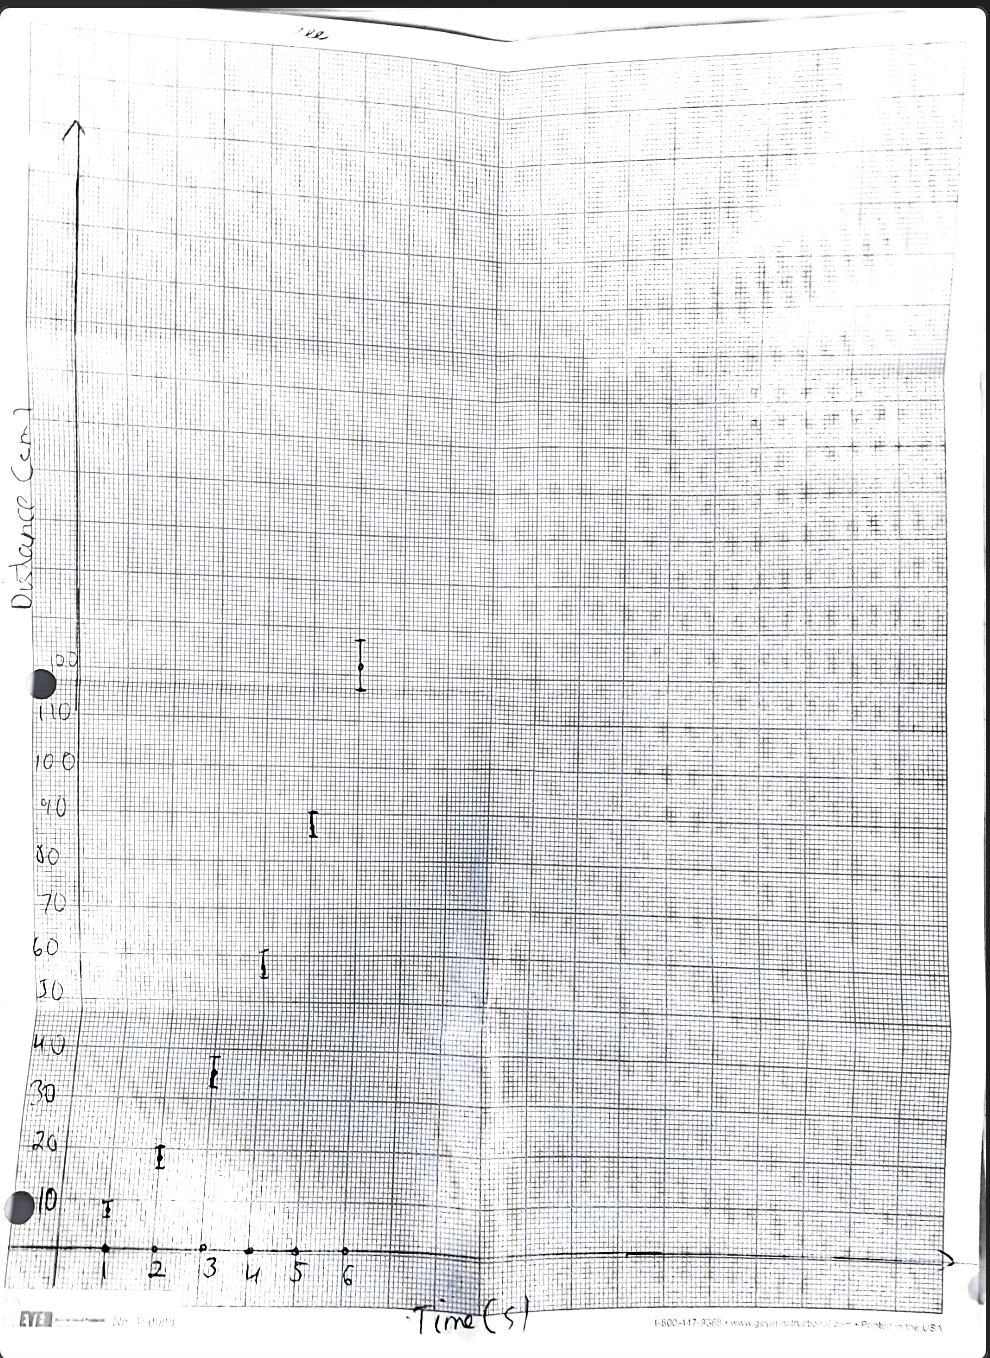 Distance (cm)
110
100
90
80
70
60
50
40
30
20
10
1 2 3 4 5 6
Time (s)
1-800-447-9368 • www.geyerinstructional.com • Printed in the USA